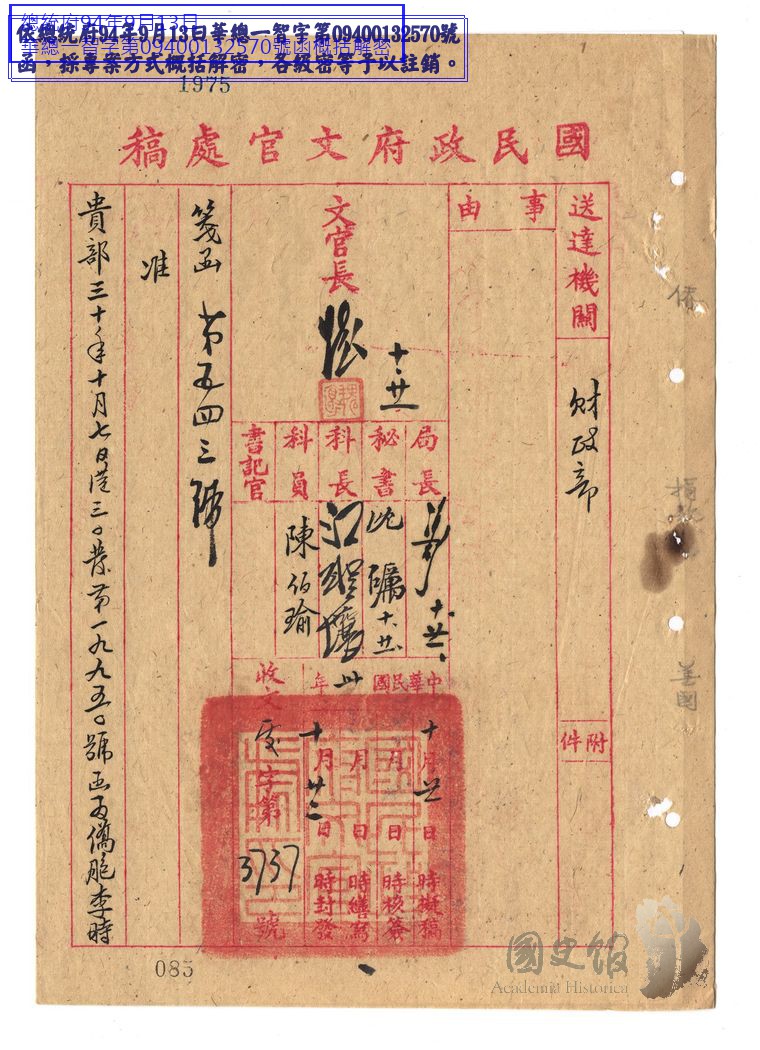 總統府94年9月13日
華總一智字第09400132570號函概括解密
依總統府94年9月13日華總一智字第09400132570號
函,採專案方式概括解密,各級密等予以註銷。
1975
國民政府文官處稿
送達機關
財政部
附件
事由
文官長
十、廿一
局長
秘書
科長
科員
書記官
陳伯瑜
中華民國卅年
十月廿一日 時擬稿
月 日 時核簽
月 日 時繕寫
十月廿三日 時封發
收文 字第3737號
箋函 第五四三號
准
貴部三十年十月七日港三〇 第一九九五〇號函為僑胞李時
085
僑
捐款
美國
國史館
Academia Historica